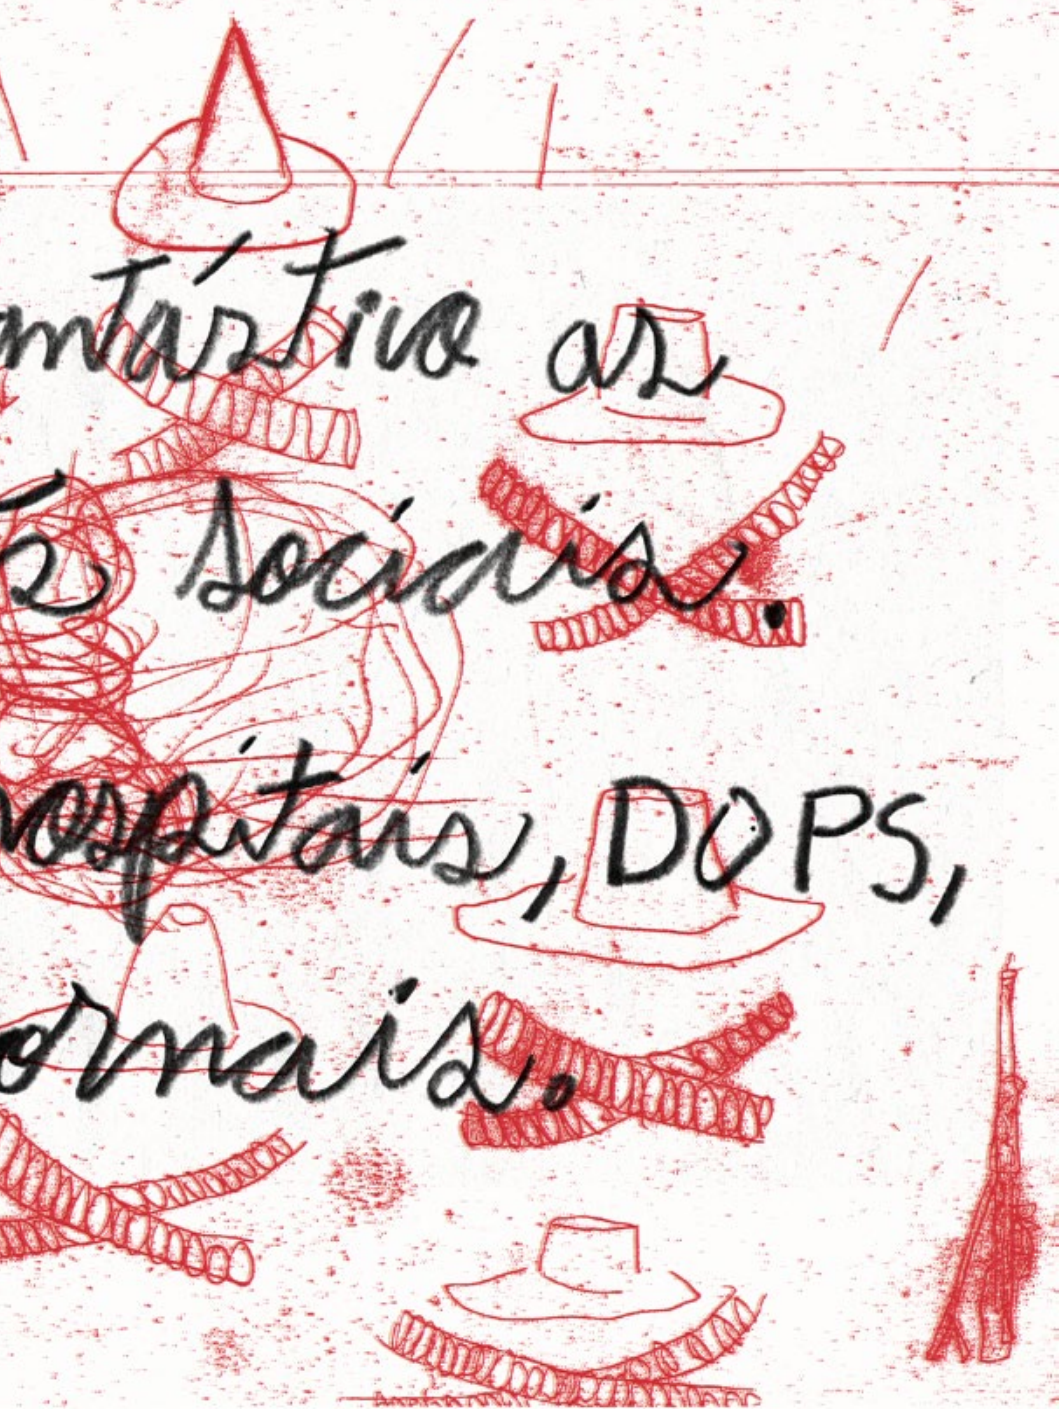 antástico as
s sociais.
hospitais, DOPS,
ornais.